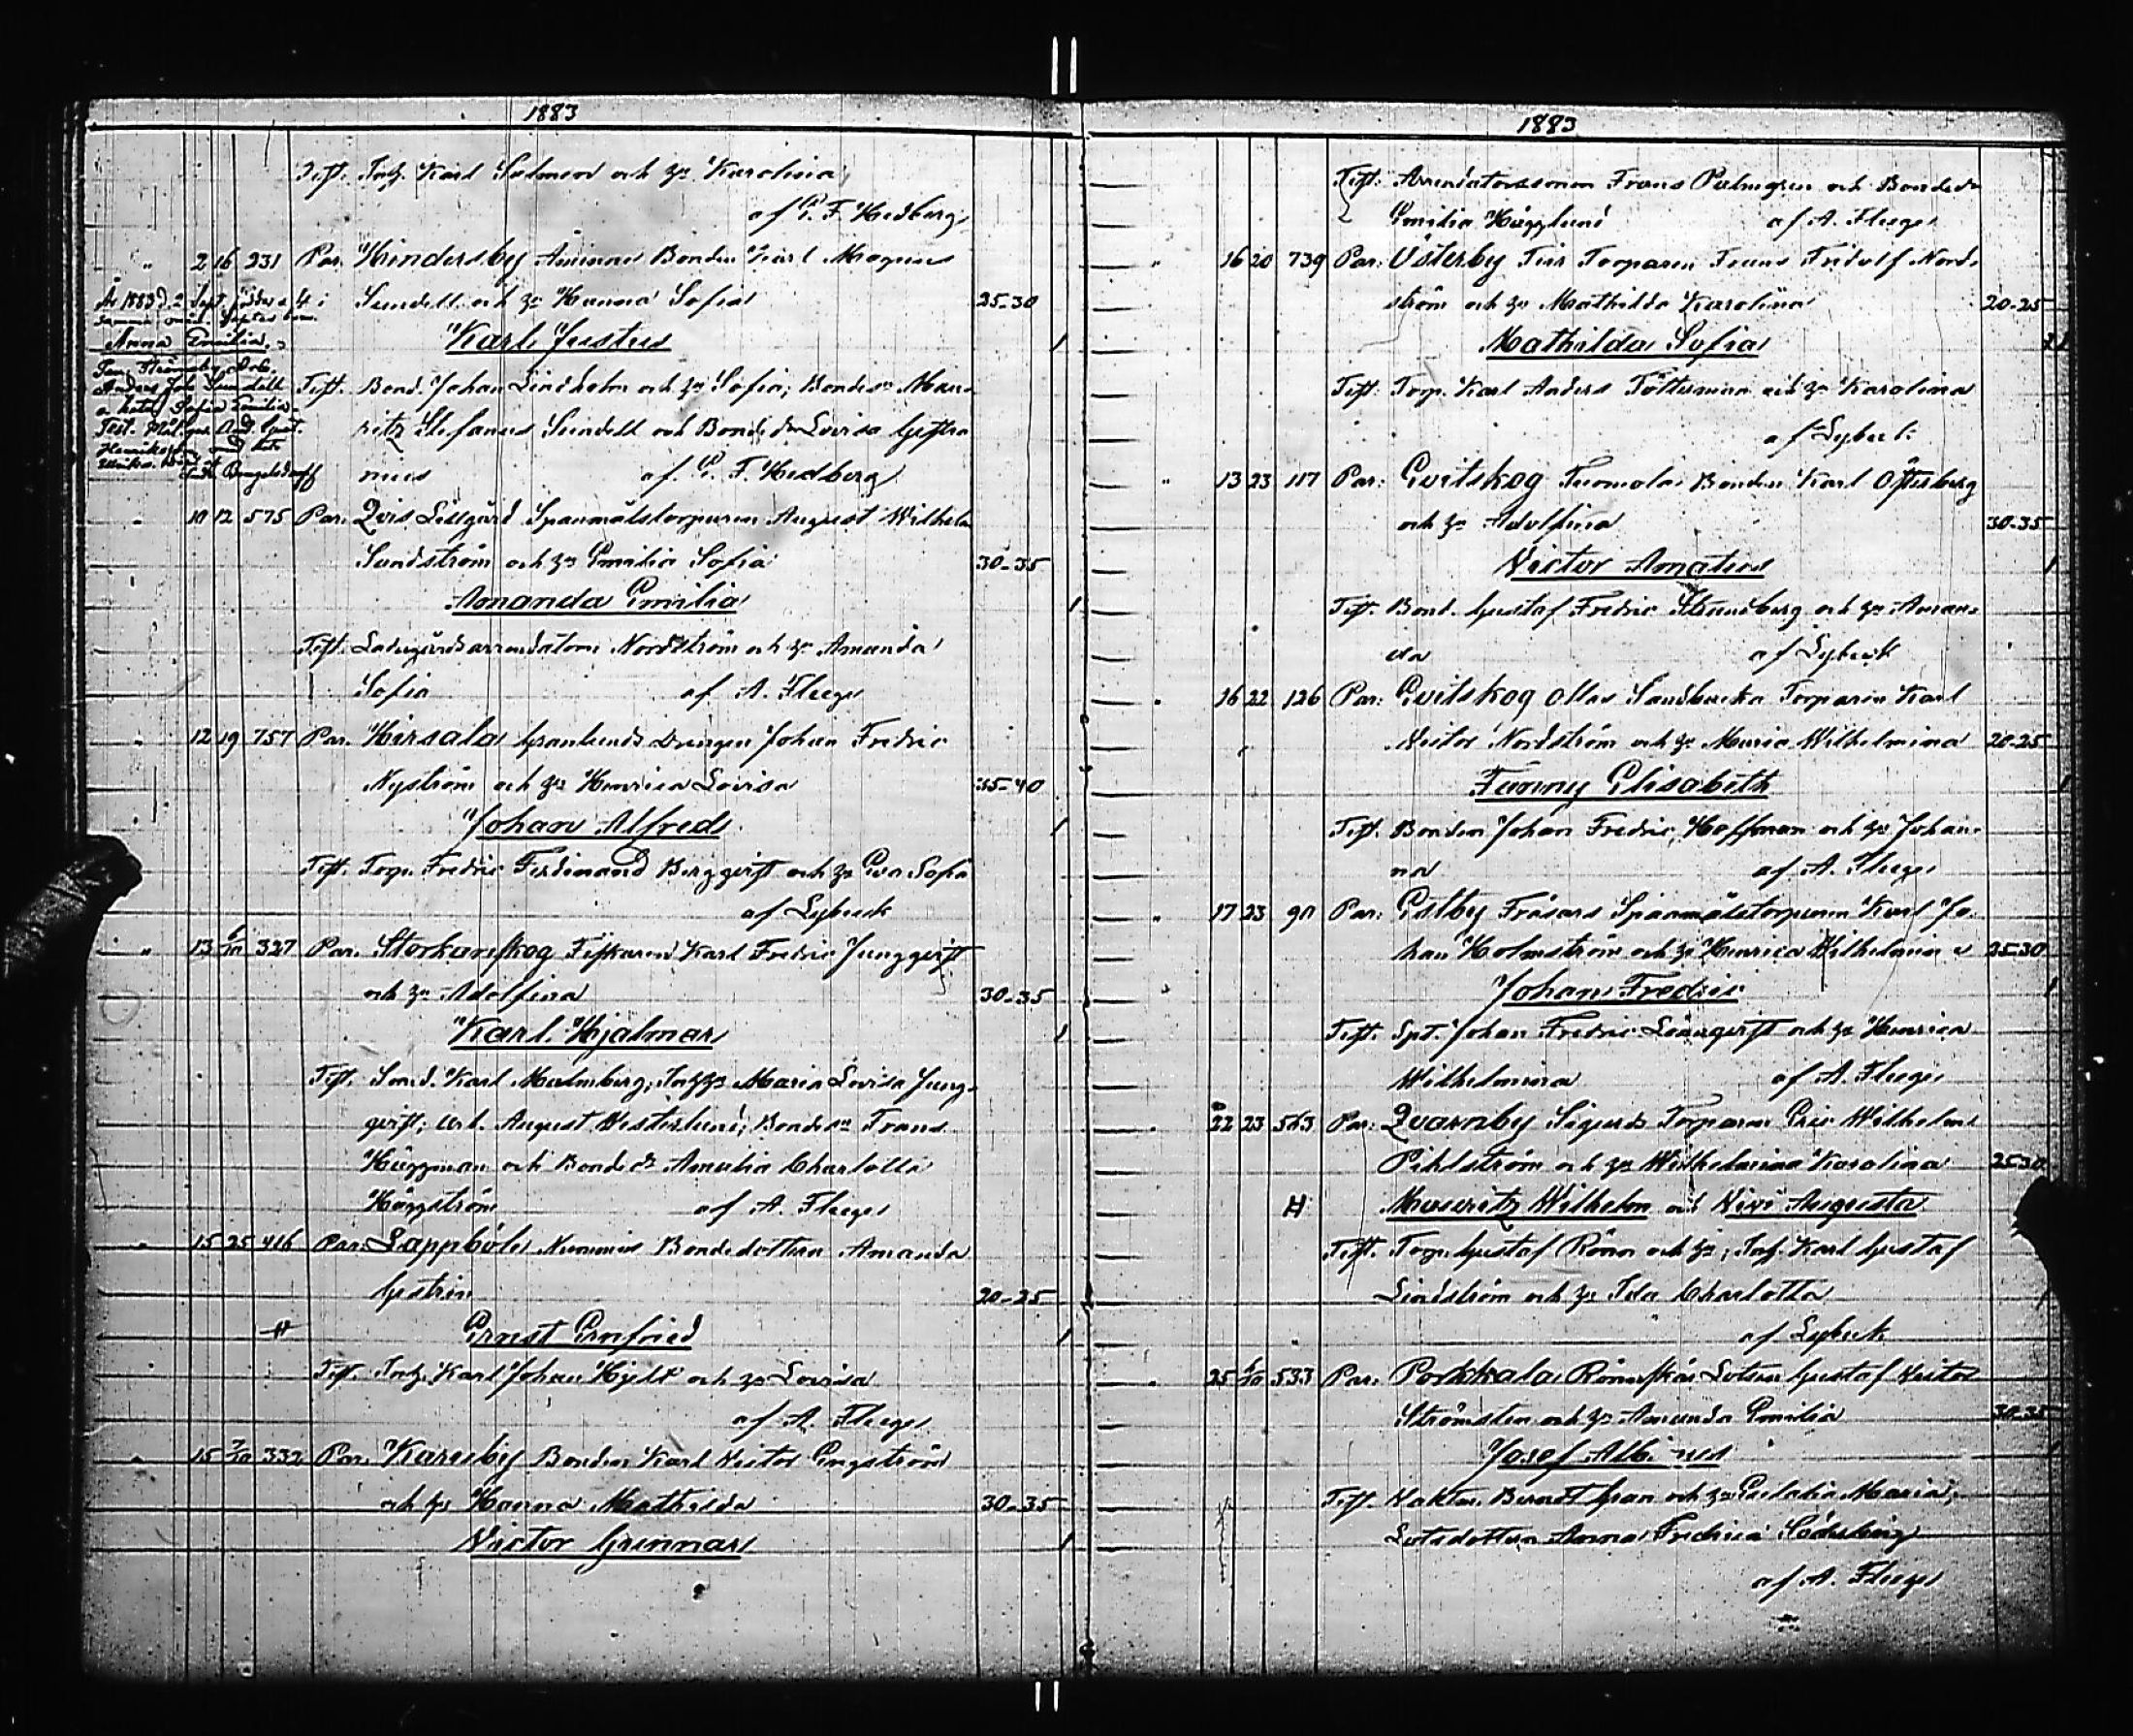 1883
Test. Inh. Karl Salmen och h:u Karolina
af E. F. Hedberg
" 2 16 231 Par. Hindersby Bonden Karl Magnus
Sundell och h:u Hanna Sofia 25-30
Karl Justus 1
År 1883 d. 2 Sept. föddes
Anna Emilia.
Sofia Emilia
Test. Bond. Johan Lindholm och h:u Sofia; Bondes:n Mau-
ritz Stefanus Sundell och Bonded:r Lovisa
af E. F. Hedberg
" 10 12 575 Par. Qvis Lillgård Spanmålstorparen August Wilhelm
Sundström och h:u Emilia Sofia 30-35
Amanda Emilia 1
Test. Ladugårdsarrendatorn Nordström och h:u Amanda
Sofia af A. Fleege
" 12 19 757 Par. Hirsala Granlunds Drengen Johan Fredric
Nyström och h:u Henrica Lovisa 35-40
Johan Alfred 1
Test. Torp. Fredric Ferdinand Bergqvist och h:u Eva Sofia
af Lybeck
" 13 6/10 327 Par. Storkanskog Fiskaren Karl Fredric Jungqvist
och h:u Adolfina 30-35
Karl Hjalmar 1
Test. Smed. Karl Malmberg; Inh. h:u Maria Lovisa Jung-
qvist; Arb. August Westerlund; Bondes:n Frans
Häggman och Bonded:r Amalia Charlotta
Häggström af A. Fleege
" 15 25 416 Par. Lappböle Nummis Bondedottern Amanda
Gestrin 20-25
H Ernst Ernfried 1
Test. Inh. Karl Johan Hjelt och h:u Lovisa
af A. Fleege
" 15 7/10 332 Par. Karuby Bonden Karl Victor Engström
och h:u Hanna Mathilda 30-35
Victor Gunnar 1
1883
Test. Arrendatorssonen Frans Palmgren och Bonded:r
Emilia Hägglund af A. Fleege
" 16 20 739 Par. Österby Torparen Frans Fridolf Nord-
ström och h:u Mathilda Karolina 20-25
Mathilda Sofia
Test. Torp. Karl Anders Fotterman och h:u Karolina
af Lybeck
" 13 23 117 Par. Evitskog Tuomola Bonden Karl Österberg
och h:u Adolfina 30-35
Victor Amatus 1
Test. Bond. Gustaf Fredric Strandberg och h:u Aman-
da af Lybeck
" 16 22 126 Par. Evitskog Ollas Sandbacka Torparen Karl
Victor Nordström och h:u Maria Wilhelmina 20-25
Fanny Elisabeth 1
Test. Bonden Johan Fredric Hoffman och h:u Johan-
na af A. Fleege
" 17 23 90 Par. Estby Fräsars Spanmålstorparen Karl Jo-
han Holmström och h:u Henrica Wilhelmina 25-30
Johan Fredric 1
Test. Spt. Johan Fredric Lönnqvist och h:u Henrica
Wilhelmina af A. Fleege
" 22 23 563 Par. Qvarnby Sigurds Torparen Eric Wilhelm
Pihlström och h:u Wilhelmina Karolina 25-30
H Mauritz Wilhelm och Vivi Augusta
Test. Torp. Gustaf Rönn och h:u; Inh. Karl Gustaf
Lindström och h:u Ida Charlotta
af Lybeck
" 25 6/10 533 Par. Porkkala Rönnskär Lotsen Gustaf Victor
Strömsten och h:u Amanda Emilia 30-35
Josef Albinus 1
Test. Berndt Gran och h:u Eulalia Maria;
Lotsdottern Anna Fredrica Söderberg
af A. Fleege